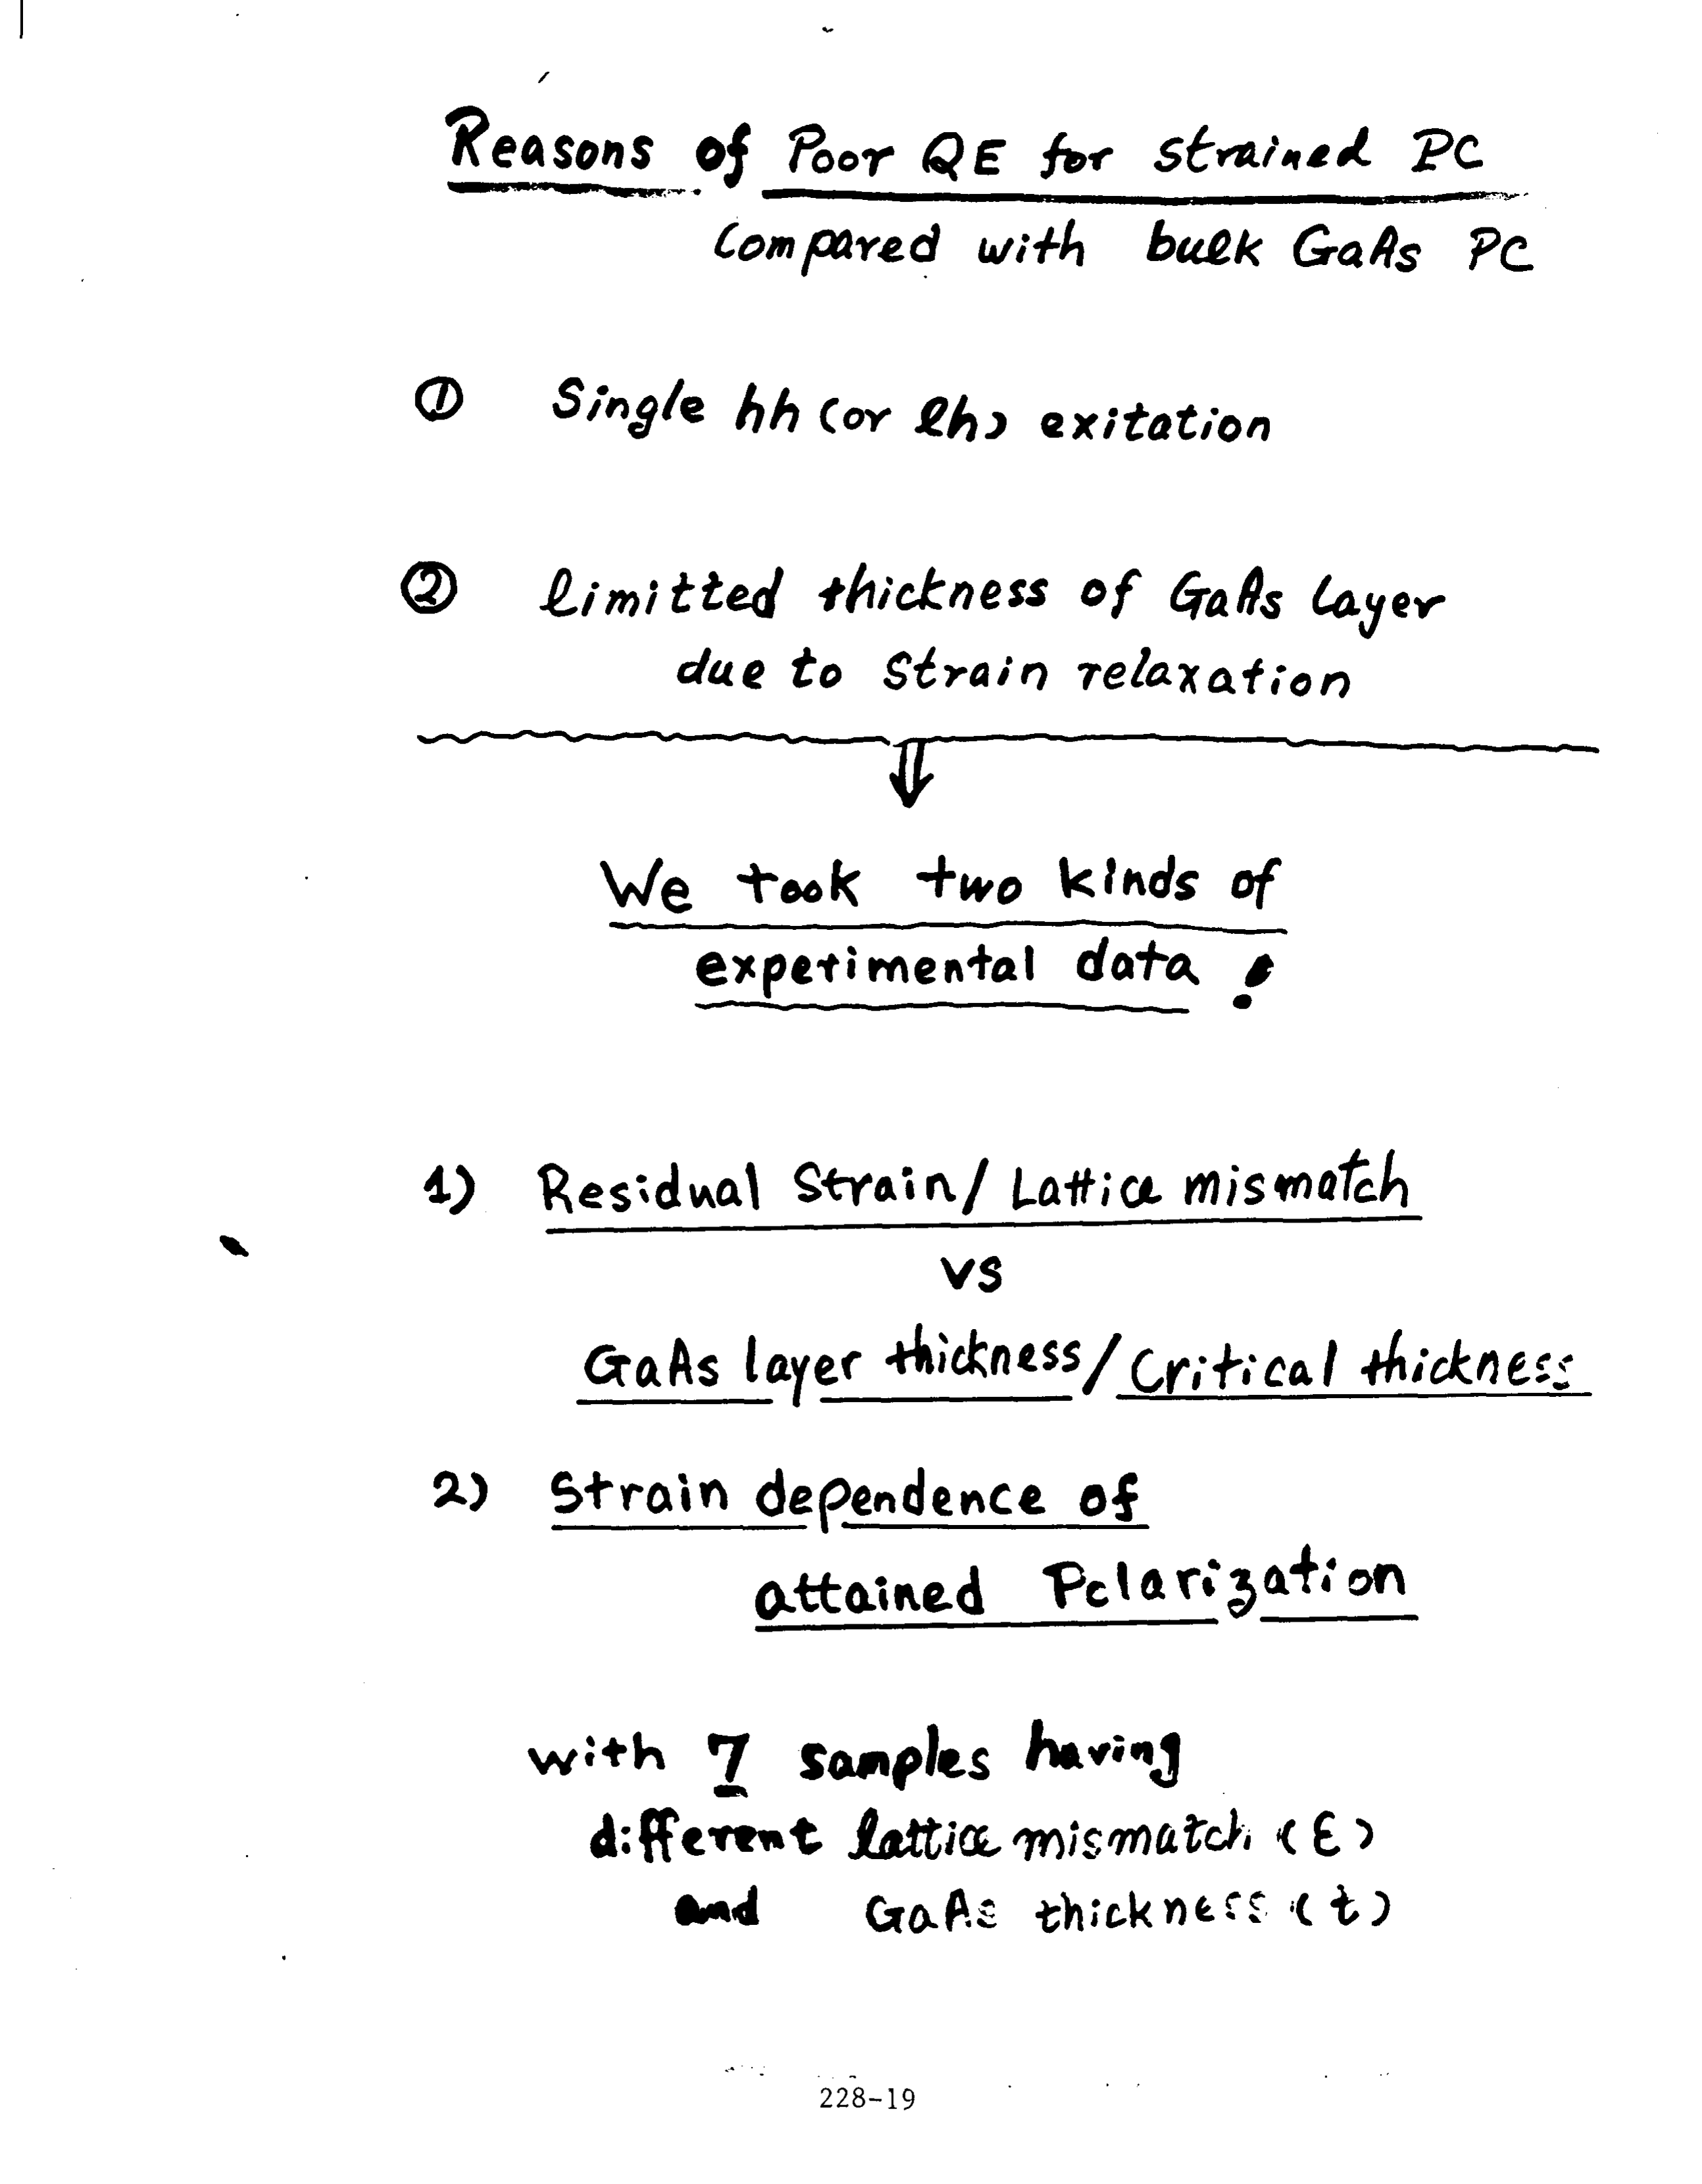 Reasons of Poor QE for strained PC
Compared with bulk GaAs PC
① Single hh (or lh) exitation
② limitted thickness of GaAs Layer
due to Strain relaxation
⇓
We took two kinds of
experimental data !
1) Residual Strain / Lattice mismatch
vs
GaAs layer thickness / Critical thickness
2) Strain dependence of
attained Polarization
with 7 samples having
different lattice mismatch (ε)
and GaAs thickness (t)
228-19